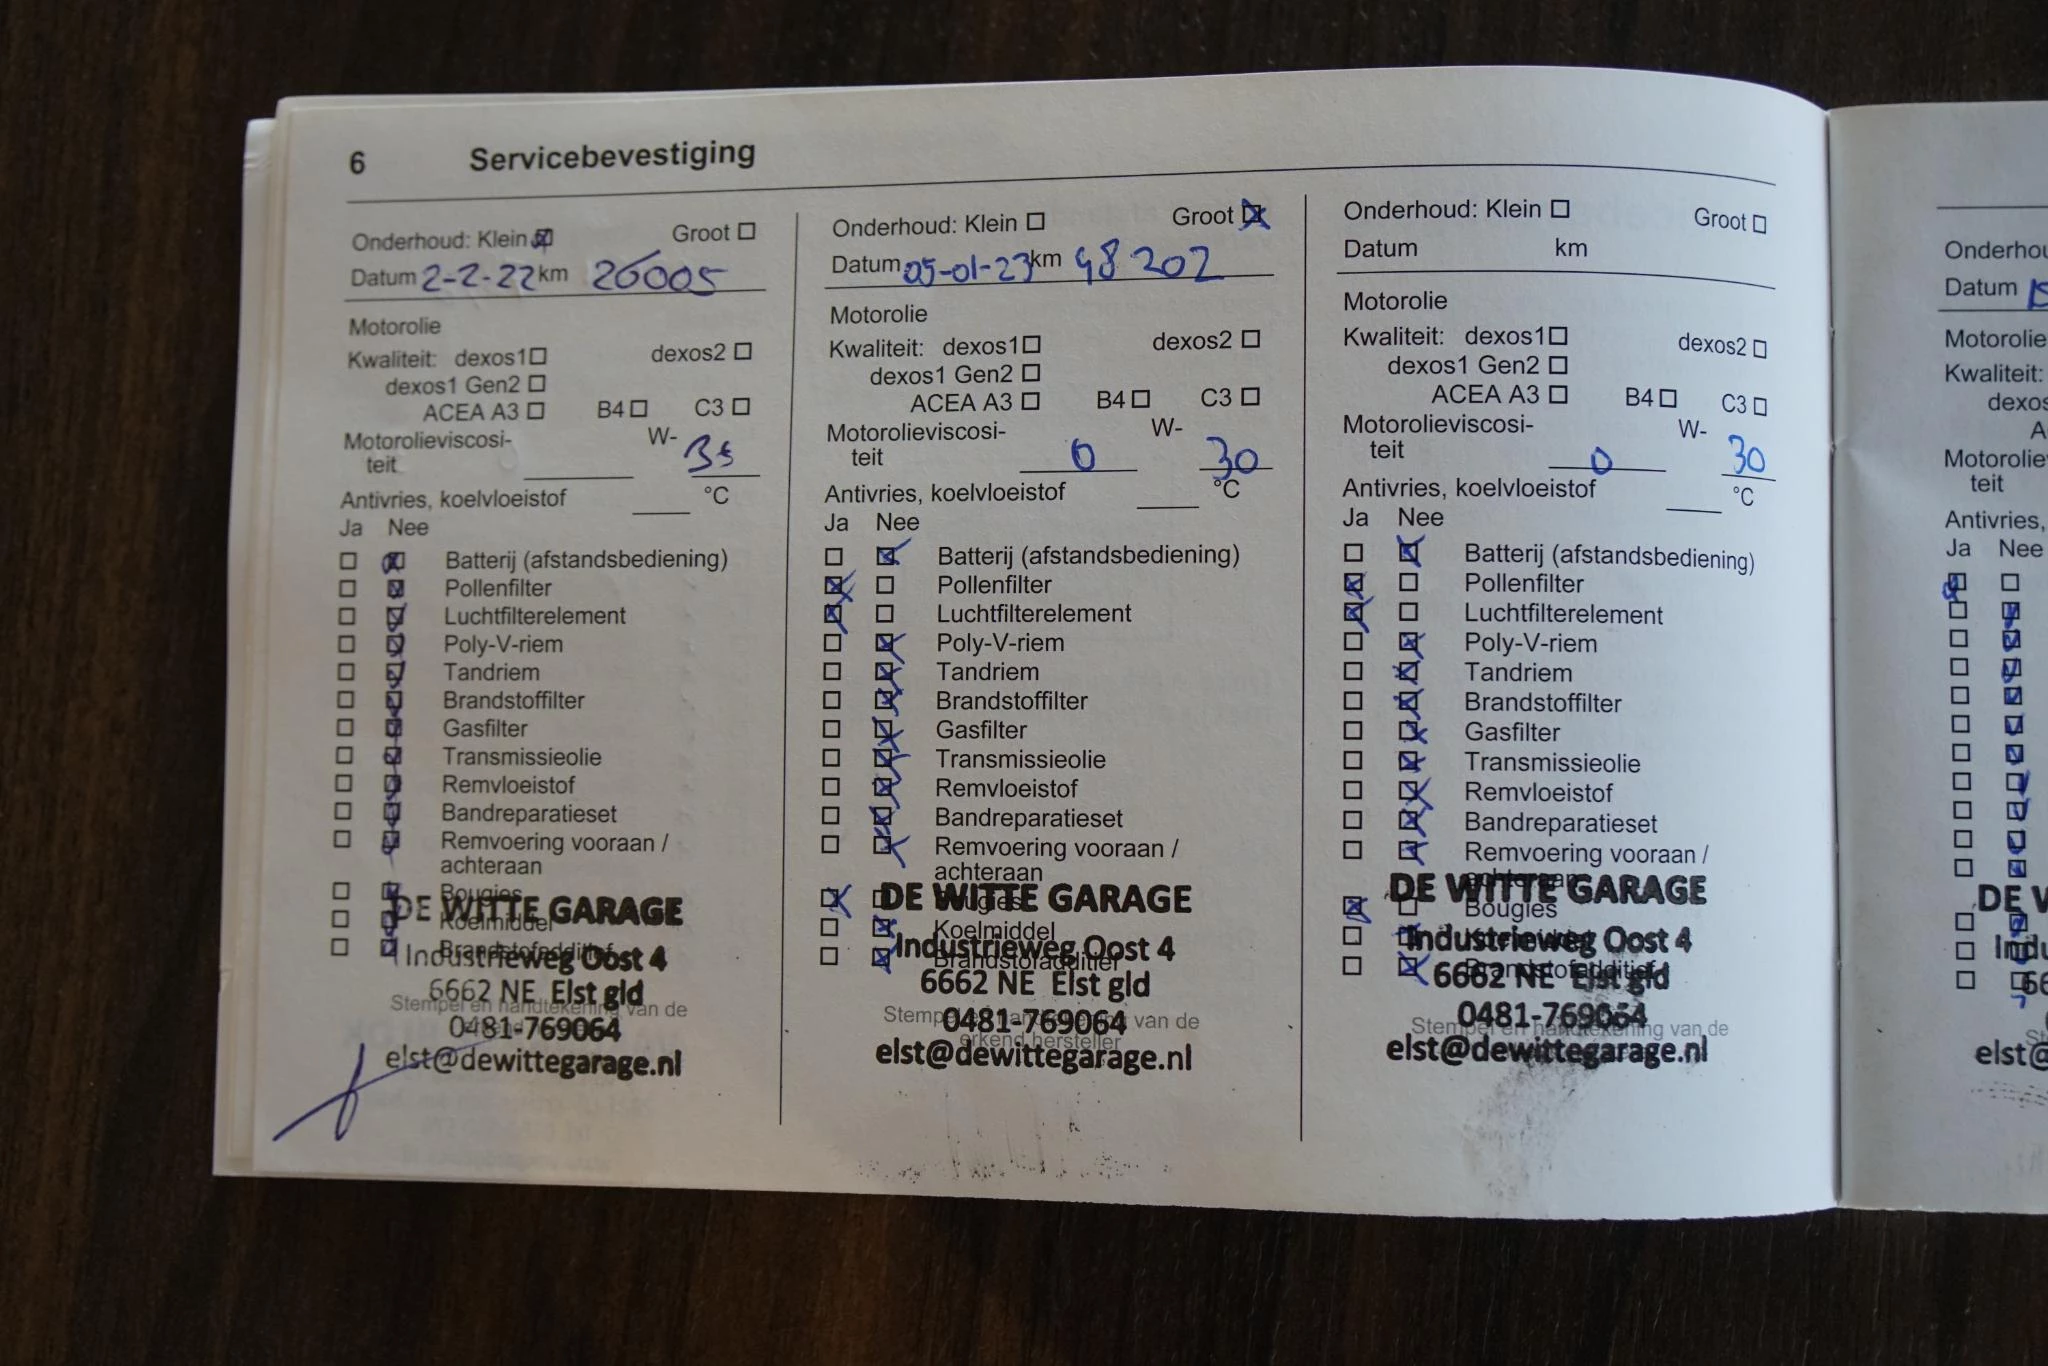 6 Servicebevestiging
Onderhoud: Klein Groot
Datum 2-2-22 km 26005
Motorolie
Kwaliteit: dexos1 dexos2
dexos1 Gen2
ACEA A3 B4 C3
Motorolieviscosi- W-
teit
Antivries, koelvloeistof °C
Ja Nee
Batterij (afstandsbediening)
Pollenfilter
Luchtfilterelement
Poly-V-riem
Tandriem
Brandstoffilter
Gasfilter
Transmissieolie
Remvloeistof
Bandreparatieset
Remvoering vooraan /
achteraan
Bougies
DE WITTE GARAGE
Koelmiddel
Brandstofadditief
Industrieweg Oost 4
6662 NE Elst gld
Stempel en handtekening van de
0481-769064
elst@dewittegarage.nl
Onderhoud: Klein Groot
Datum 05-01-23 km 48 202
Motorolie
Kwaliteit: dexos1 dexos2
dexos1 Gen2
ACEA A3 B4 C3
Motorolieviscosi- W-
teit 0 30
Antivries, koelvloeistof °C
Ja Nee
Batterij (afstandsbediening)
Pollenfilter
Luchtfilterelement
Poly-V-riem
Tandriem
Brandstoffilter
Gasfilter
Transmissieolie
Remvloeistof
Bandreparatieset
Remvoering vooraan /
achteraan
DE WITTE GARAGE
Bougies
Koelmiddel
Industrieweg Oost 4
Brandstofadditief
6662 NE Elst gld
Stempel en handtekening van de
0481-769064
erkend hersteller
elst@dewittegarage.nl
Onderhoud: Klein Groot
Datum km
Motorolie
Kwaliteit: dexos1 dexos2
dexos1 Gen2
ACEA A3 B4 C3
Motorolieviscosi- W-
teit 0 30
Antivries, koelvloeistof °C
Ja Nee
Batterij (afstandsbediening)
Pollenfilter
Luchtfilterelement
Poly-V-riem
Tandriem
Brandstoffilter
Gasfilter
Transmissieolie
Remvloeistof
Bandreparatieset
Remvoering vooraan /
achteraan
DE WITTE GARAGE
Bougies
Industrieweg Oost 4
Brandstofadditief
6662 NE Elst gld
0481-769064
Stempel en handtekening van de
elst@dewittegarage.nl
Onderhou
Datum
Motorolie
Kwaliteit:
dexos
A
Motorolie
teit
Antivries,
Ja Nee
DE W
Indu
66
elst@